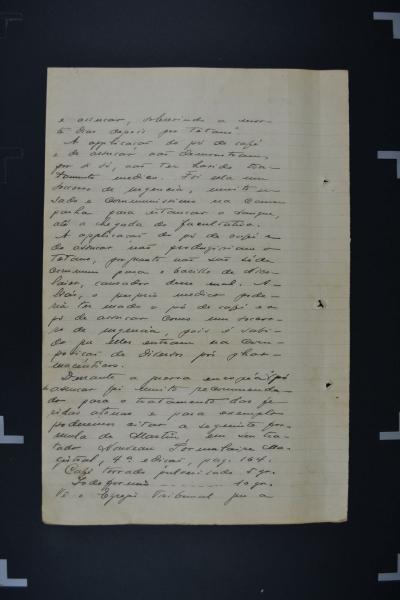 e assucar, sobrevindo a mor-
te dias depois por tetano.
A applicação do pó de café
e do assucar não demonstram,
por si só, não ter havido tra-
tamento medico. Foi ella um
soccorro de urgencia, muito u-
sado e communissimo na cam-
panha para estancar o sangue,
até a chegada do facultativo.
A applicação do pó de café e
do assucar não produziriam o
tetano, porquanto não são séde
commum para o bacillo de Nico-
laier, causador desse mal. A-
liás, o proprio medico pode-
ria ter usado o pó de café e o
pó de assucar como um soccor-
ro de urgencia, pois é sabi-
do que elles entram na com-
posição de diversos pós phar-
maceuticos.
Durante a guerra européa o pó
assucar foi muito recommenda-
do para o tratamento das fe-
ridas atonas e para exemplo
podemos citar a seguinte for-
mula de Martin, em seu tra-
tado Nouveau Formulaire Ma-
gistral, 4ª edição, pag. 164.
Café torrado pulverisado 5 gr.
Iodoformio 10 gr.
Vê o Egregio Tribunal que a